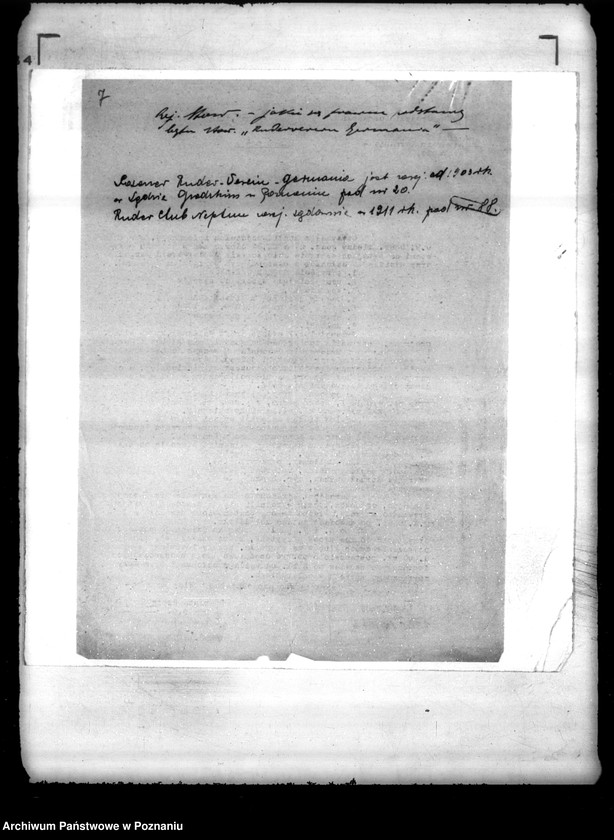 7
Rej. Stow. – jakie są prawne podstawy
bytu stow. „Ruderverein Germania" —
Posener Ruder-Verein-Germania jest rej. od 1903 rk.
w Sądzie Grodzkim w Poznaniu pod nr 20.
Ruder Club Neptun rej. sądownie w 1911 rk. pod nr 88.
Archiwum Państwowe w Poznaniu